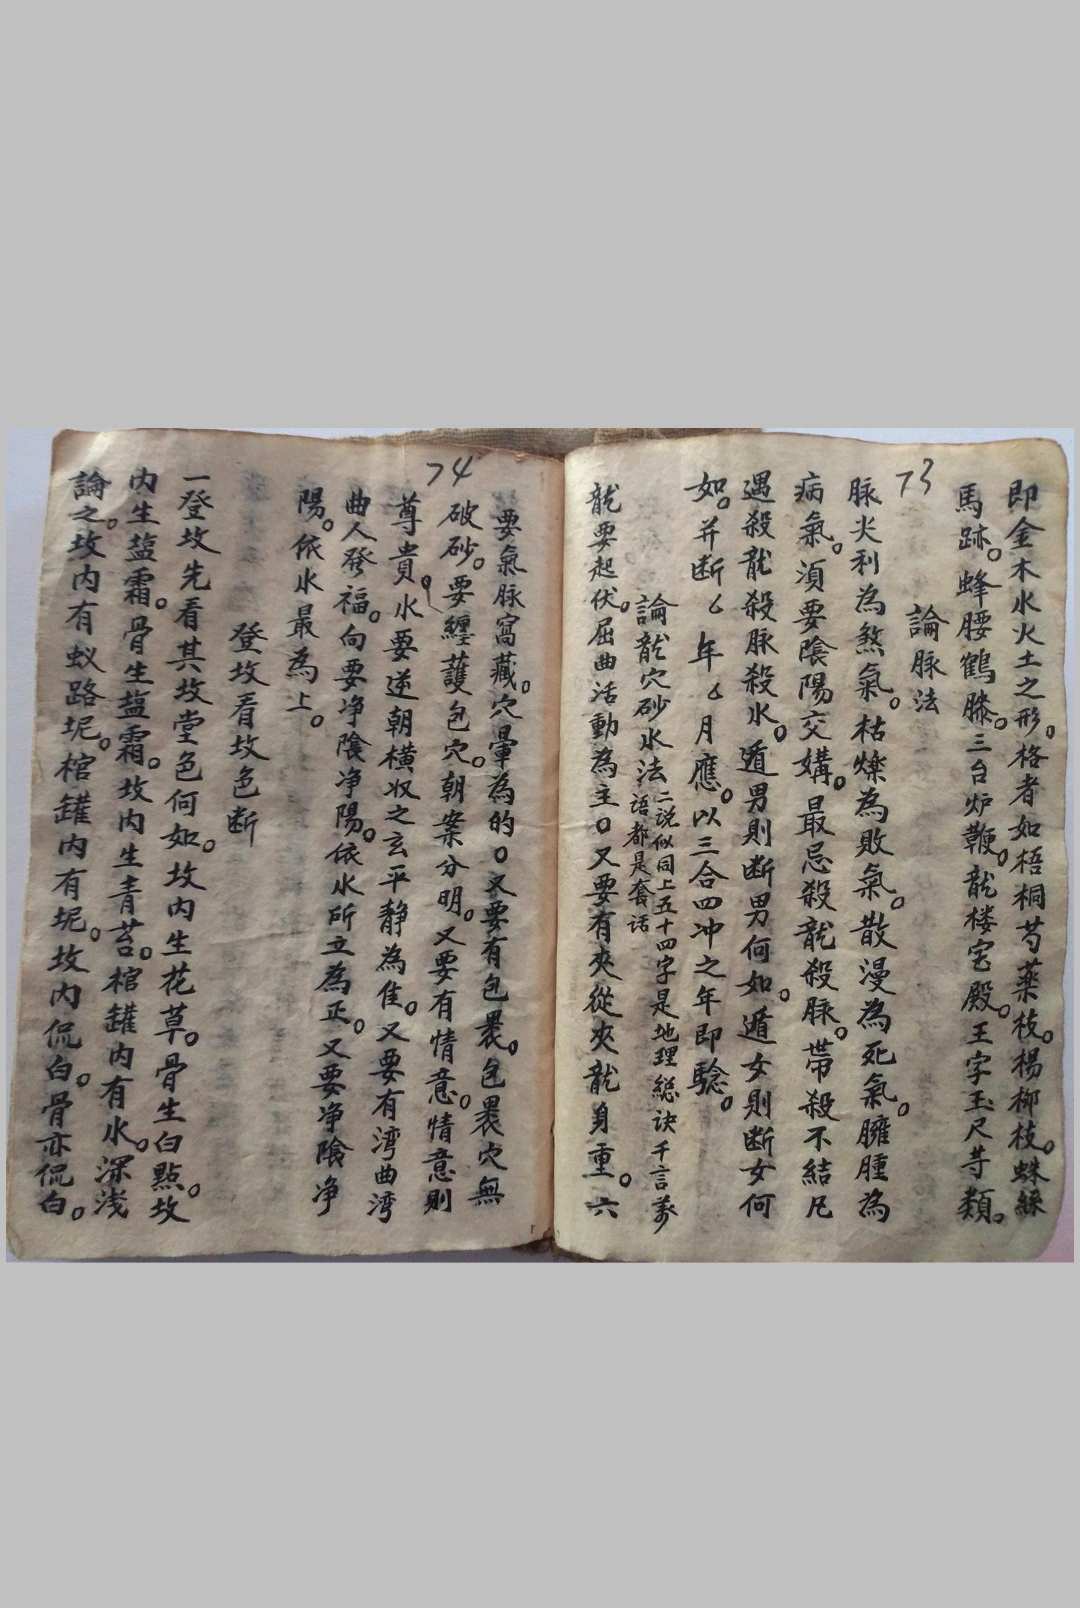 73
即金木水火土之形。格者如梧桐芍藥枝。楊柳枝。蛛絲
馬跡。蜂腰鶴膝。三台炉鞭。龍楼宝殿。王字玉尺等類。
論脉法
脉尖利為煞氣。枯燥為敗氣。散漫為死氣。臃腫為
病氣。須要陰陽交媾。最忌殺龍殺脉。帶殺不結凡
遇殺龍殺脉殺水。遁男則断男何如。遁女則断女何
如。并断 年 月應。以三合四冲之年即騐。
論龍穴砂水法 二说似同上五十四字是地理総诀千言萬
语都是套话
龍要起伏。屈曲活動為主。又要有夾從夾龍身重。六
74
要氣脉窩藏。穴暈為的。又要有包裹。包裹穴無
破砂。要纏護包穴。朝案分明。又要有情意。情意則
尊貴。水要逆朝横收之玄平静為佳。又要有湾曲湾
曲人發福。向要净陰净陽。依水所立為正。又要净陰净
陽。依水最為上。
登坟看坟色断
一登坟先看其坟堂色何如。坟内生花草。骨生白點。坟
内生塩霜。骨生塩霜。坟内生青苔。棺罐内有水。深浅
論之。坟内有蚁路坭。棺罐内有坭。坟内侃白。骨亦侃白。